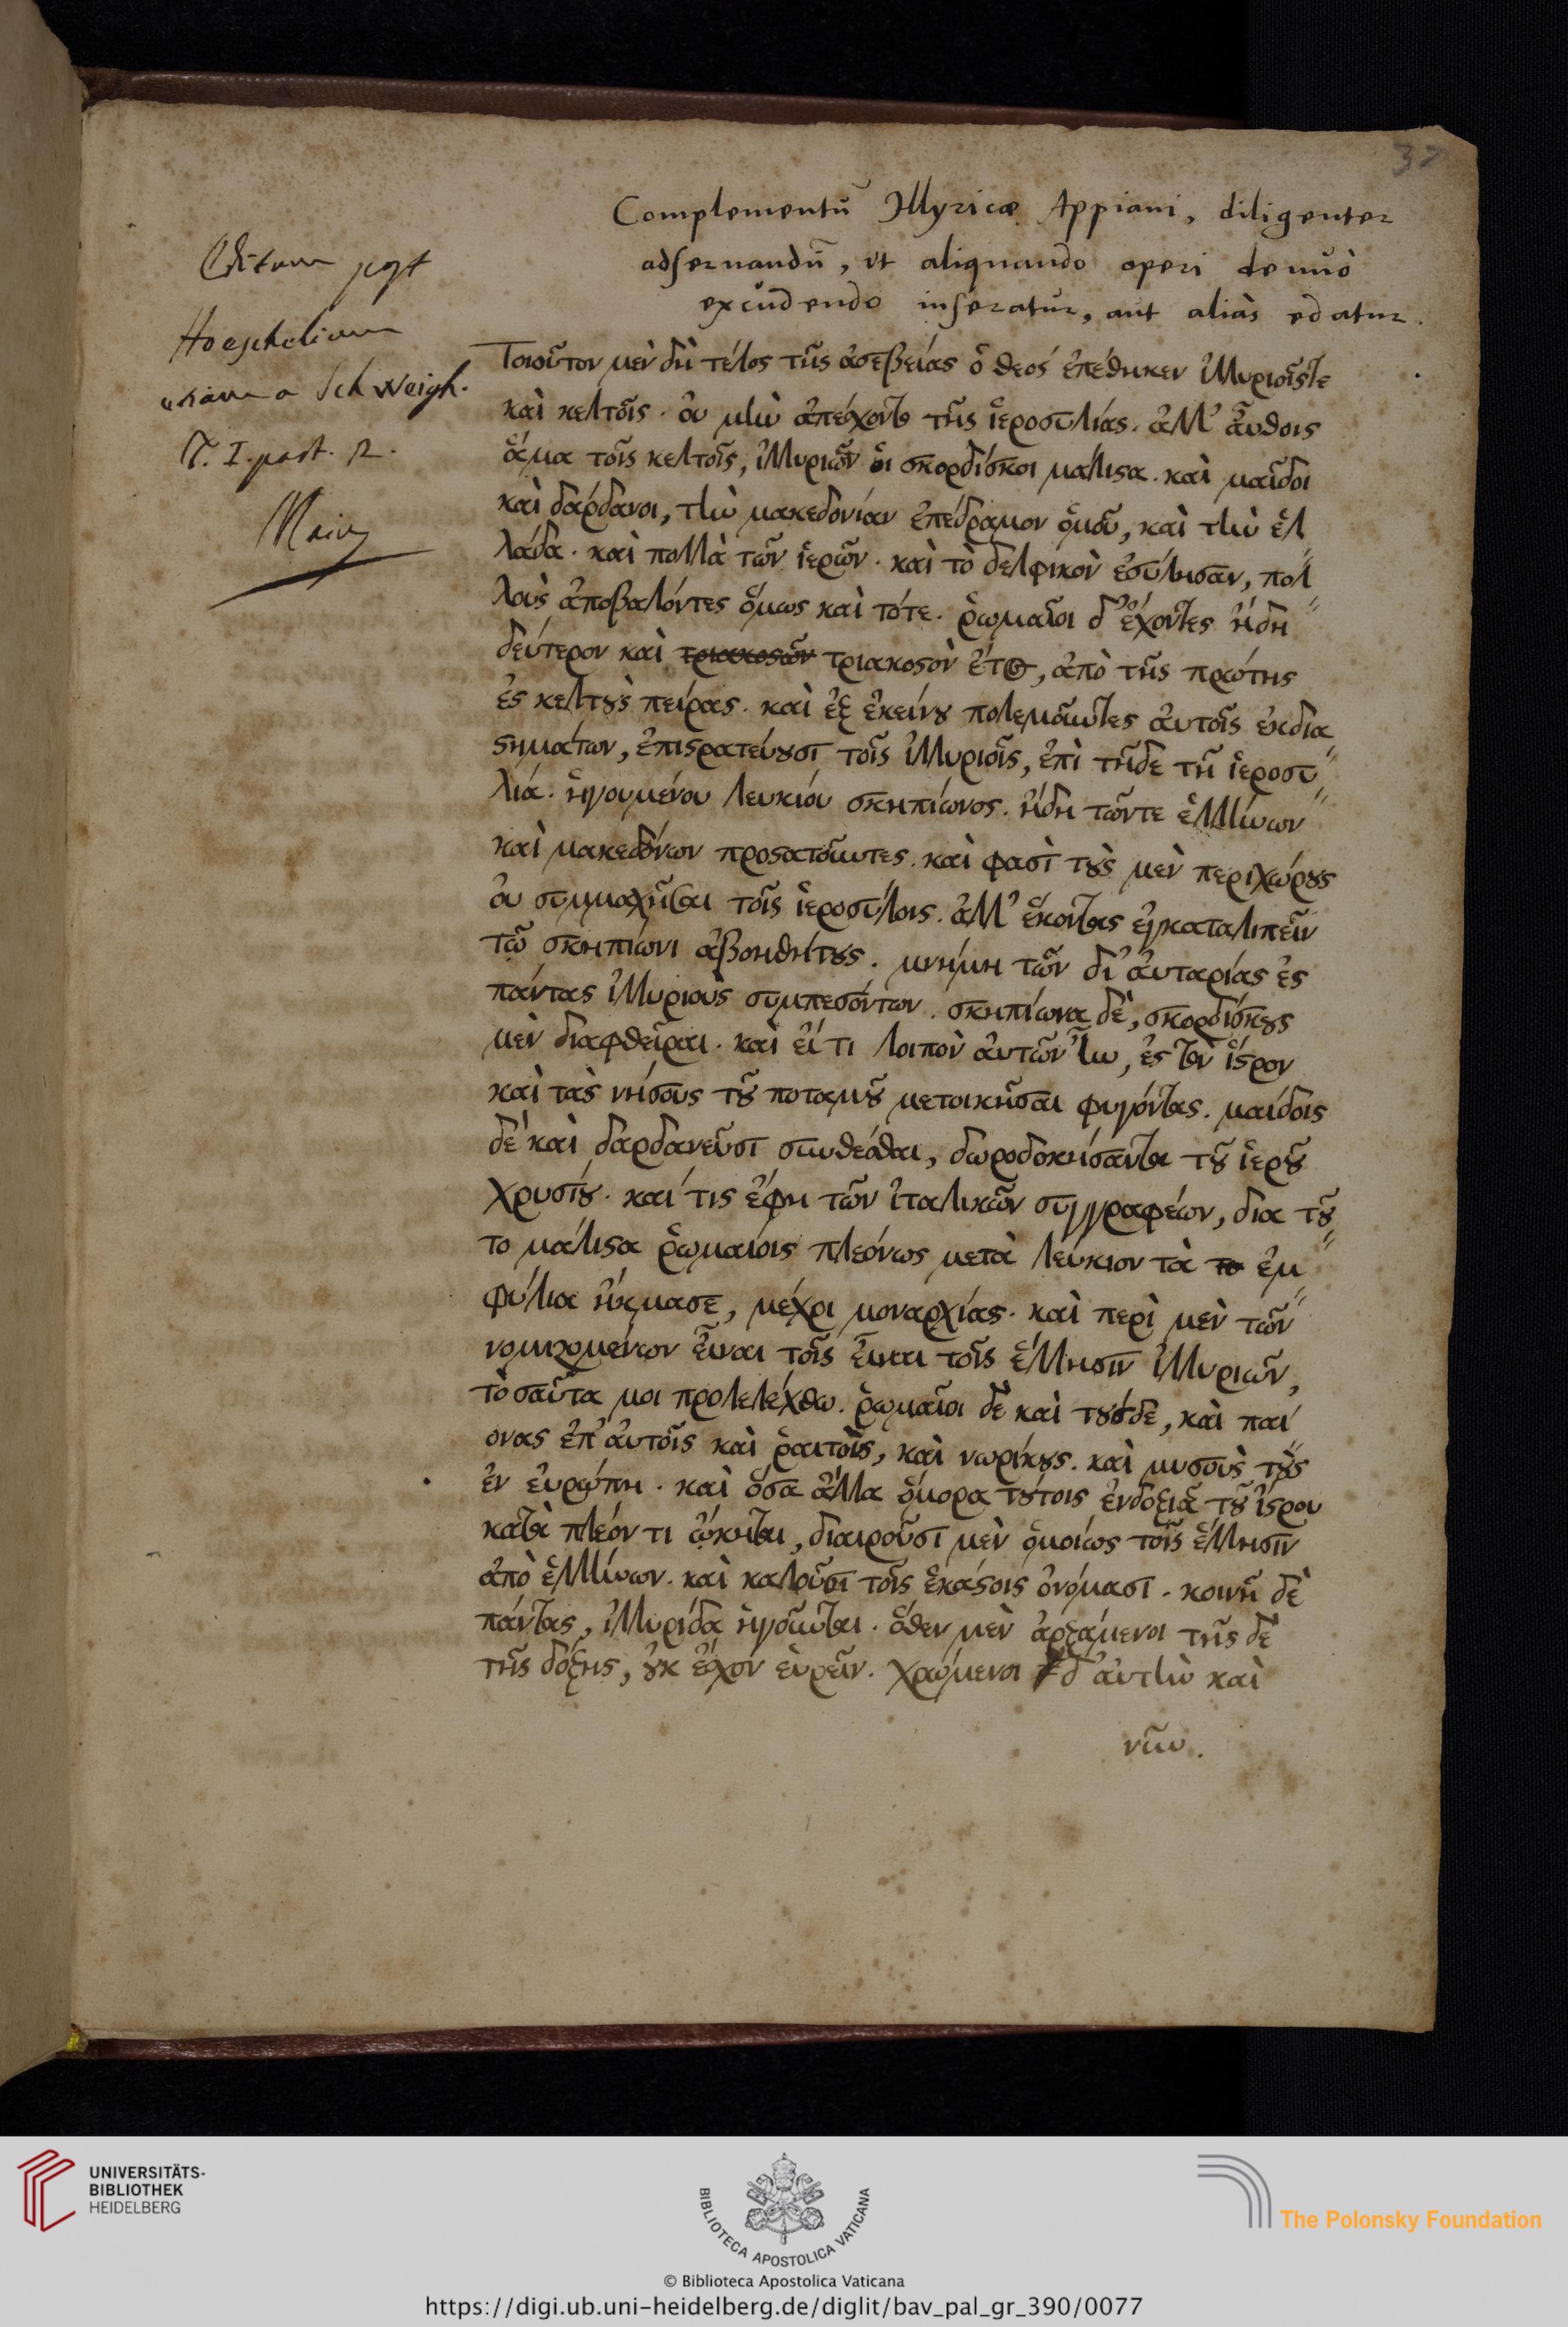 37
Complementũ Illyricæ Appiani, diligenter
adseruandũ, ut aliquando operi denuò
excudendo inseratur, aut aliàs edatur.
Editum post
Hoeschelium
etiam a Schweigh.
T. I. part. 2.
Τοιοῦτον μὲν δὴ τέλος τῆς ἀσεβείας ὁ θεός ἐπέθηκεν ἰλλυριοῖς τε
καὶ κελτοῖς. οὐ μὴν ἀπέσχοντο τῆς ἱεροσυλίας. ἀλλ' αὖθοις
ἅμα τοῖς κελτοῖς, ἰλλυριῶν οἱ σκορδίσκοι μάλιστα. καὶ μαῖδοι
καὶ δάρδανοι, τὴν μακεδονίαν ἐπέδραμον ὁμοῦ, καὶ τὴν ἑλ
λάδα. καὶ πολλὰ τῶν ἱερῶν. καὶ τὸ δελφικὸν ἐσύλησαν, πολ
λοὺς ἀποβαλόντες ὅμως καὶ τότε. ῥωμαῖοι δ' ἔχοντες ἤδη
δεύτερον καὶ τριακοστῶν τριακοστὸν ἔτος, ἀπὸ τῆς πρώτης
ἐς κελτοὺς πείρας. καὶ ἐξ ἐκείνου πολεμοῦντες αὐτοῖς ἐκ δια
στημάτων, ἐπιστρατεύουσι τοῖς ἰλλυριοῖς, ἐπὶ τῇδε τῇ ἱεροσυ
λίᾳ. ἡγουμένου λευκίου σκηπίωνος. ἤδη τῶντε ἑλλήνων
καὶ μακεδόνων προστατοῦντες. καὶ φασὶ τοὺς μὲν περιχώρους
οὐ συμμαχῆσαι τοῖς ἱεροσύλοις. ἀλλ' ἑκόντας ἐγκαταλιπεῖν
τῷ σκηπίωνι ἀβοηθήτους. μνήμῃ τῶν δι' αὐταρίας ἐς
πάντας ἰλλυριοὺς συμπεσόντων. σκηπίωνα δὲ, σκορδίσκους
μὲν διαφθεῖραι. καὶ εἴ τι λοιπὸν αὐτῶν ἦν, ἐς τὸν ἴστρον
καὶ τὰς νήσους τοῦ ποταμοῦ μετοικῆσαι φυγόντας. μαίδοις
δὲ καὶ δαρδανεῦσι συνθέσθαι, δωροδοκήσαντα τοῦ ἱεροῦ
χρυσίου. καί τις ἔφη τῶν ἰταλικῶν συγγραφέων, δια τοῦ
το μάλιστα ῥωμαίοις πλεόνως μετὰ λεύκιον τὰ το ἐμ
φύλια ἤκμασε, μέχρι μοναρχίας. καὶ περὶ μὲν τῶν
νομιζομένων εἶναι τοῖς εἶναι τοῖς ἕλλησιν ἰλλυριῶν,
τοσαῦτα μοι προλελέχθω. ῥωμαῖοι δὲ καὶ τούσδε, καὶ παί
ονας ἐπ' αὐτοῖς καὶ ῥαιτοῖς, καὶ νωρίκους. καὶ μυσοὺς τοὺς
ἐν εὐρώπῃ. καὶ ὅσα ἄλλα ὅμορα τούτοις ἐνδοξιᾷ τοῦ ἴστρου
κατὰ πλέον τι ᾤκηται, διαιροῦσι μὲν ὁμοίως τοῖς ἕλλησιν
ἀπὸ ἑλλήνων. καὶ καλοῦσι τοῖς ἑκάστοις ὀνόμασι. κοινῇ δὲ
πάντας, ἰλλυρίδα ἡγοῦνται. ὅθεν μὲν ἀρξάμενοι τῆς δὲ
τῆς δόξης, οὐκ ἔσχον εὑρεῖν. χρώμενοι δ' αὐτὴν καὶ
νῦν.
UNIVERSITÄTS-
BIBLIOTHEK
HEIDELBERG
BIBLIOTECA APOSTOLICA VATICANA
The Polonsky Foundation
© Biblioteca Apostolica Vaticana
https://digi.ub.uni-heidelberg.de/diglit/bav_pal_gr_390/0077